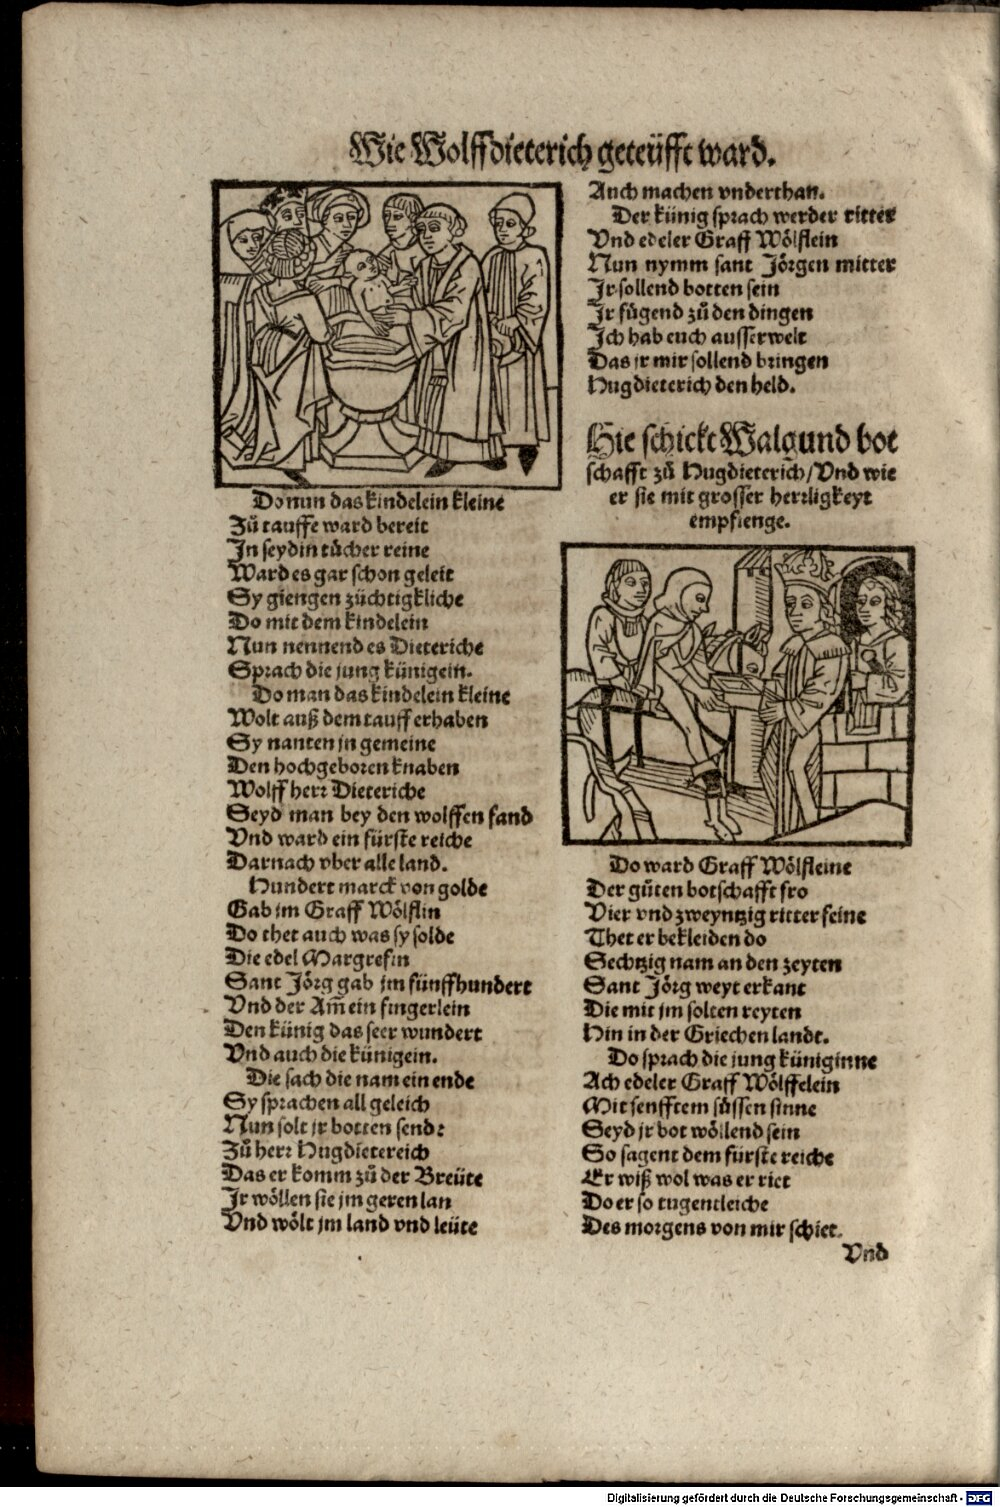 Wie Wolffdieterich geteüfft ward.
Do nun das kindelein kleine
Zů tauffe ward bereit
In seydin tůcher reine
Ward es gar schon geleit
Sy giengen züchtigkliche
Do mit dem kindelein
Nun nennend es Dieteriche
Sprach die jung künigein.
Do man das kindelein kleine
Wolt auß dem tauff erhaben
Sy nanten in gemeine
Den hochgeboren knaben
Wolff herr Dieteriche
Seyd man bey den wolffen fand
Vnd ward ein fürste reiche
Darnach vber alle land.
Hundert marck von golde
Gab im Graff Wölflin
Do thet auch was sy solde
Die edel Margrefin
Sant Jörg gab im fünffhundert
Vnd der Am̄ ein fingerlein
Den künig das seer wundert
Vnd auch die künigein.
Die sach die nam ein ende
Sy sprachen all geleich
Nun solt ir botten sende
Zů herr Hugdietereich
Das er komm zů der Breüte
Ir wöllen sie im geren lan
Vnd wölt im land vnd leüte
Auch machen vnderthan.
Der künig sprach werder ritter
Vnd edeler Graff Wölflein
Nun nymm sant Jörgen mitter
Ir sollend botten sein
Ir fůgend zů den dingen
Ich hab euch ausserwelt
Das ir mir sollend bringen
Hugdieterich den held.
Hie schickt Walgund bot
schafft zů Hugdieterich/Vnd wie
er sie mit grosser herrligkeyt
empfienge.
Do ward Graff Wölfleine
Der gůten botschafft fro
Vier vnd zweyntzig ritter seine
Thet er bekleiden do
Sechtzig nam an den zeyten
Sant Jörg weyt erkant
Die mit im solten reyten
Hin in der Griechen landt.
Do sprach die jung küniginne
Ach edeler Graff Wölffelein
Mit senfftem süssen sinne
Seyd ir bot wöllend sein
So sagent dem fürste reiche
Er wiß wol was er riet
Do er so tugentleiche
Des morgens von mir schiet.
Vnd
Digitalisierung gefördert durch die Deutsche Forschungsgemeinschaft - DFG